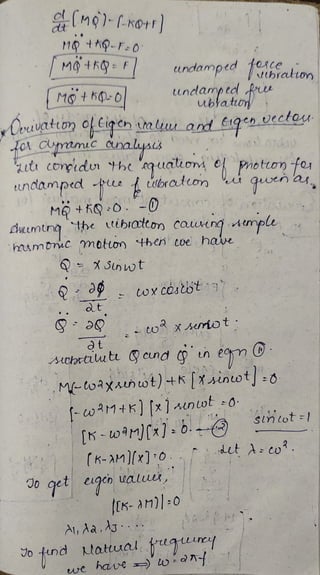 d/dt [MQ̇] - [-KQ+F]
MQ̈ + KQ - F = 0
MQ̈ + KQ = F undamped force vibration
MQ̈ + KQ = 0 undamped free vibration
* Derivation of Eigen values and Eigen vectors
for dynamic analysis
Lets consider the equations of motion for
undamped free vibration is given as,
MQ̈ + KQ = 0 - ①
Assuming the vibration causing simple
harmonic motion then we have
Q = x sinωt
Q̇ = ∂Q/∂t = ωx cosωt
Q̈ = ∂Q̇/∂t = -ω² x sinωt
substitute Q and Q̈ in eqn ①
M(-ω²x sinωt) + K[x sinωt] = 0
[-ω²M+K] [x] sinωt = 0
[K - ω²M][x] = 0 - ② sinωt = 1
[K - λM][x] = 0 let λ = ω²
To get eigen values,
|[K - λM]| = 0
λ1, λ2, λ3 ....
To find Natural frequency
we have ⇒ ω = 2πf